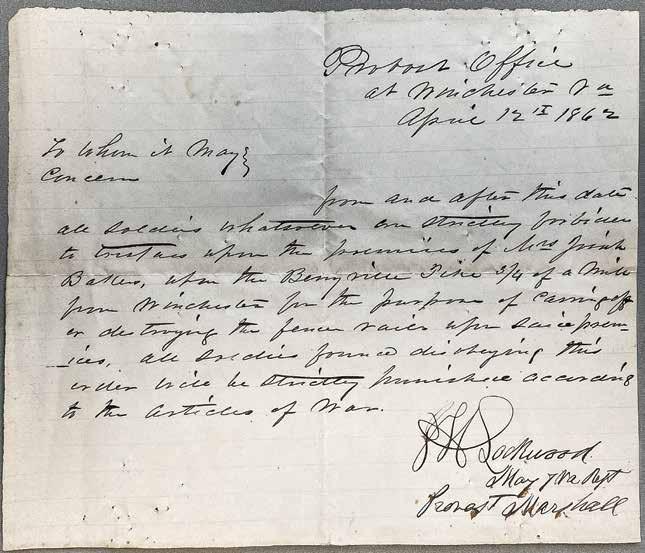 Provost Office
at Winchester Va
April 12th 1862
To Whom it May
Concern
from and after this date
all soldiers whatsoever are strictly forbiden
to trespass upon the premises of Mrs
Bakers, upon the Berryville Pike 3/4 of a Mile
from Winchester for the purpose of Carring off
or destroying the fence rails upon said prem-
ises, all soldiers found disobeying this
order will be strictly punished according
to the Articles of War.
Lockwood
Maj 7 Va Regt
Provost Marshall